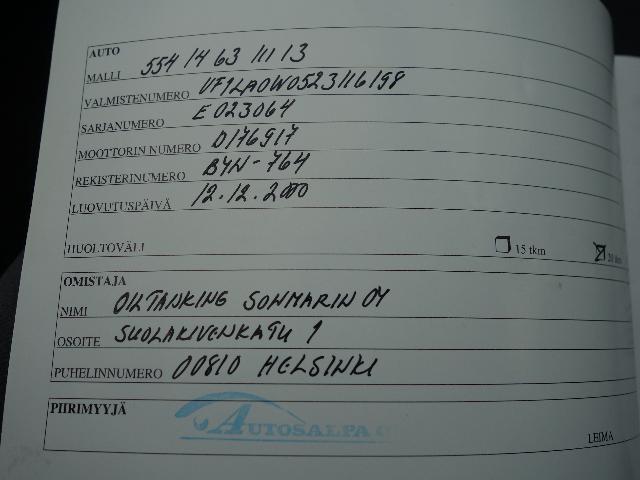 AUTO
MALLI 554 14 63 111 13
VALMISTENUMERO VF1LA0W0523116198
SARJANUMERO E023064
MOOTTORIN NUMERO D176917
REKISTERINUMERO BYN-764
LUOVUTUSPÄIVÄ 12.12.2000
HUOLTOVÄLI 15 tkm
OMISTAJA
NIMI OILTANKING SONMARIN OY
OSOITE SUOLAKIVENKATU 1
PUHELINNUMERO 00810 HELSINKI
PIIRIMYYJÄ AUTOSALPA
LEIMA